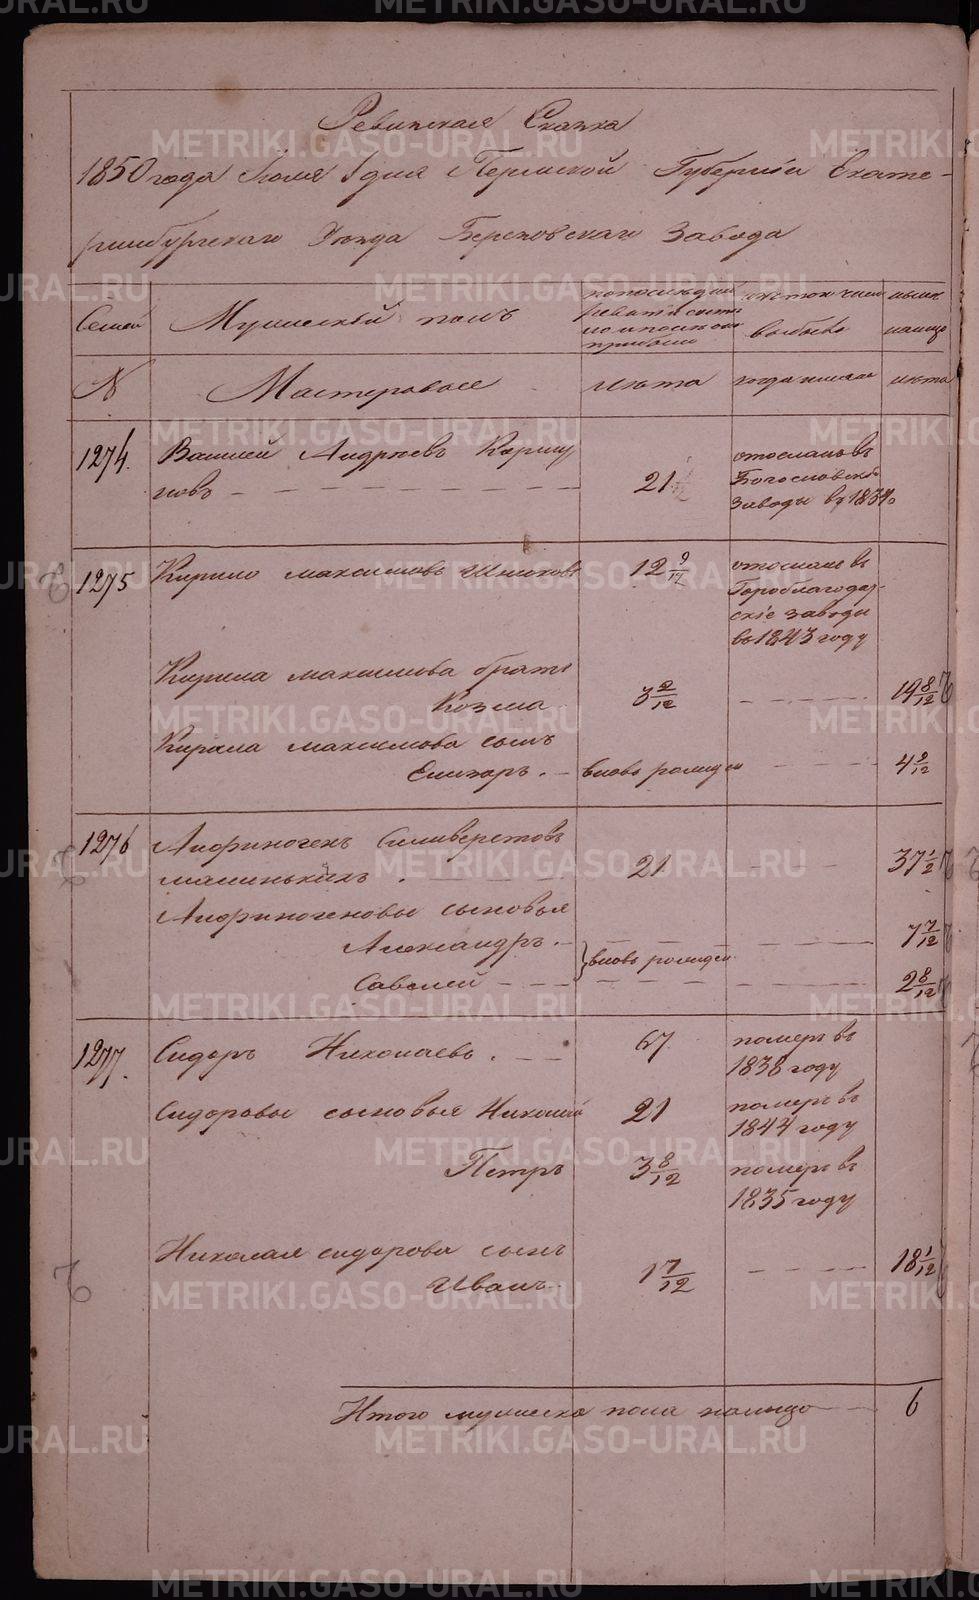 Ревизская Сказка
1850 года Июля 1 дня Пермской Губерніи Екате-
ринбургскаго Уѣзда Березовскаго Завода
Семей Мужескій полъ по послѣдней ревизіи состояло и послѣ оной прибыло изъ того числа выбыло нынѣ на лицо
№ Мастеровые лѣта года лѣта
1274. Василей Андреевъ
новъ 21 отосланъ в Богословскіе Заводы в 184
1275 Кирило Максимовъ 12 9/12 отосланъ в
Гороблагодат-
скіе заводы
въ 1843 году
Кирила Максимова братъ
Козма 3 2/12 19 8/12
Кирила Максимова сынъ
Елизаръ. вновь рожден 4 2/12
1276 Анфиногенъ Силиверстовъ
Маминькихъ 21 37 1/2
Анфиногеновы сыновья
Александръ. 7 7/12
Савелей вновь рожден 2 8/12
1277. Сидоръ Николаевъ. 67 померъ въ
1838 году
Сидоровы сыновья Николай 21 померъ въ
1844 году
Петръ 3 8/12 померъ въ
1835 году
Николая Сидорова сынъ
Иванъ 1 7/12 18 1/12
Итого мужеска пола налицо 6
METRIKI.GASO-URAL.RU